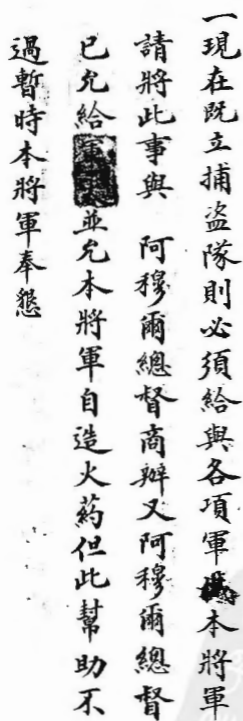 一現在既立捕盜隊則必須給與各項軍本將軍
請將此事與 阿穆爾總督商辦又阿穆爾總督
已允給並允本將軍自造火葯但此幫助不
過暫時本將軍奉懇